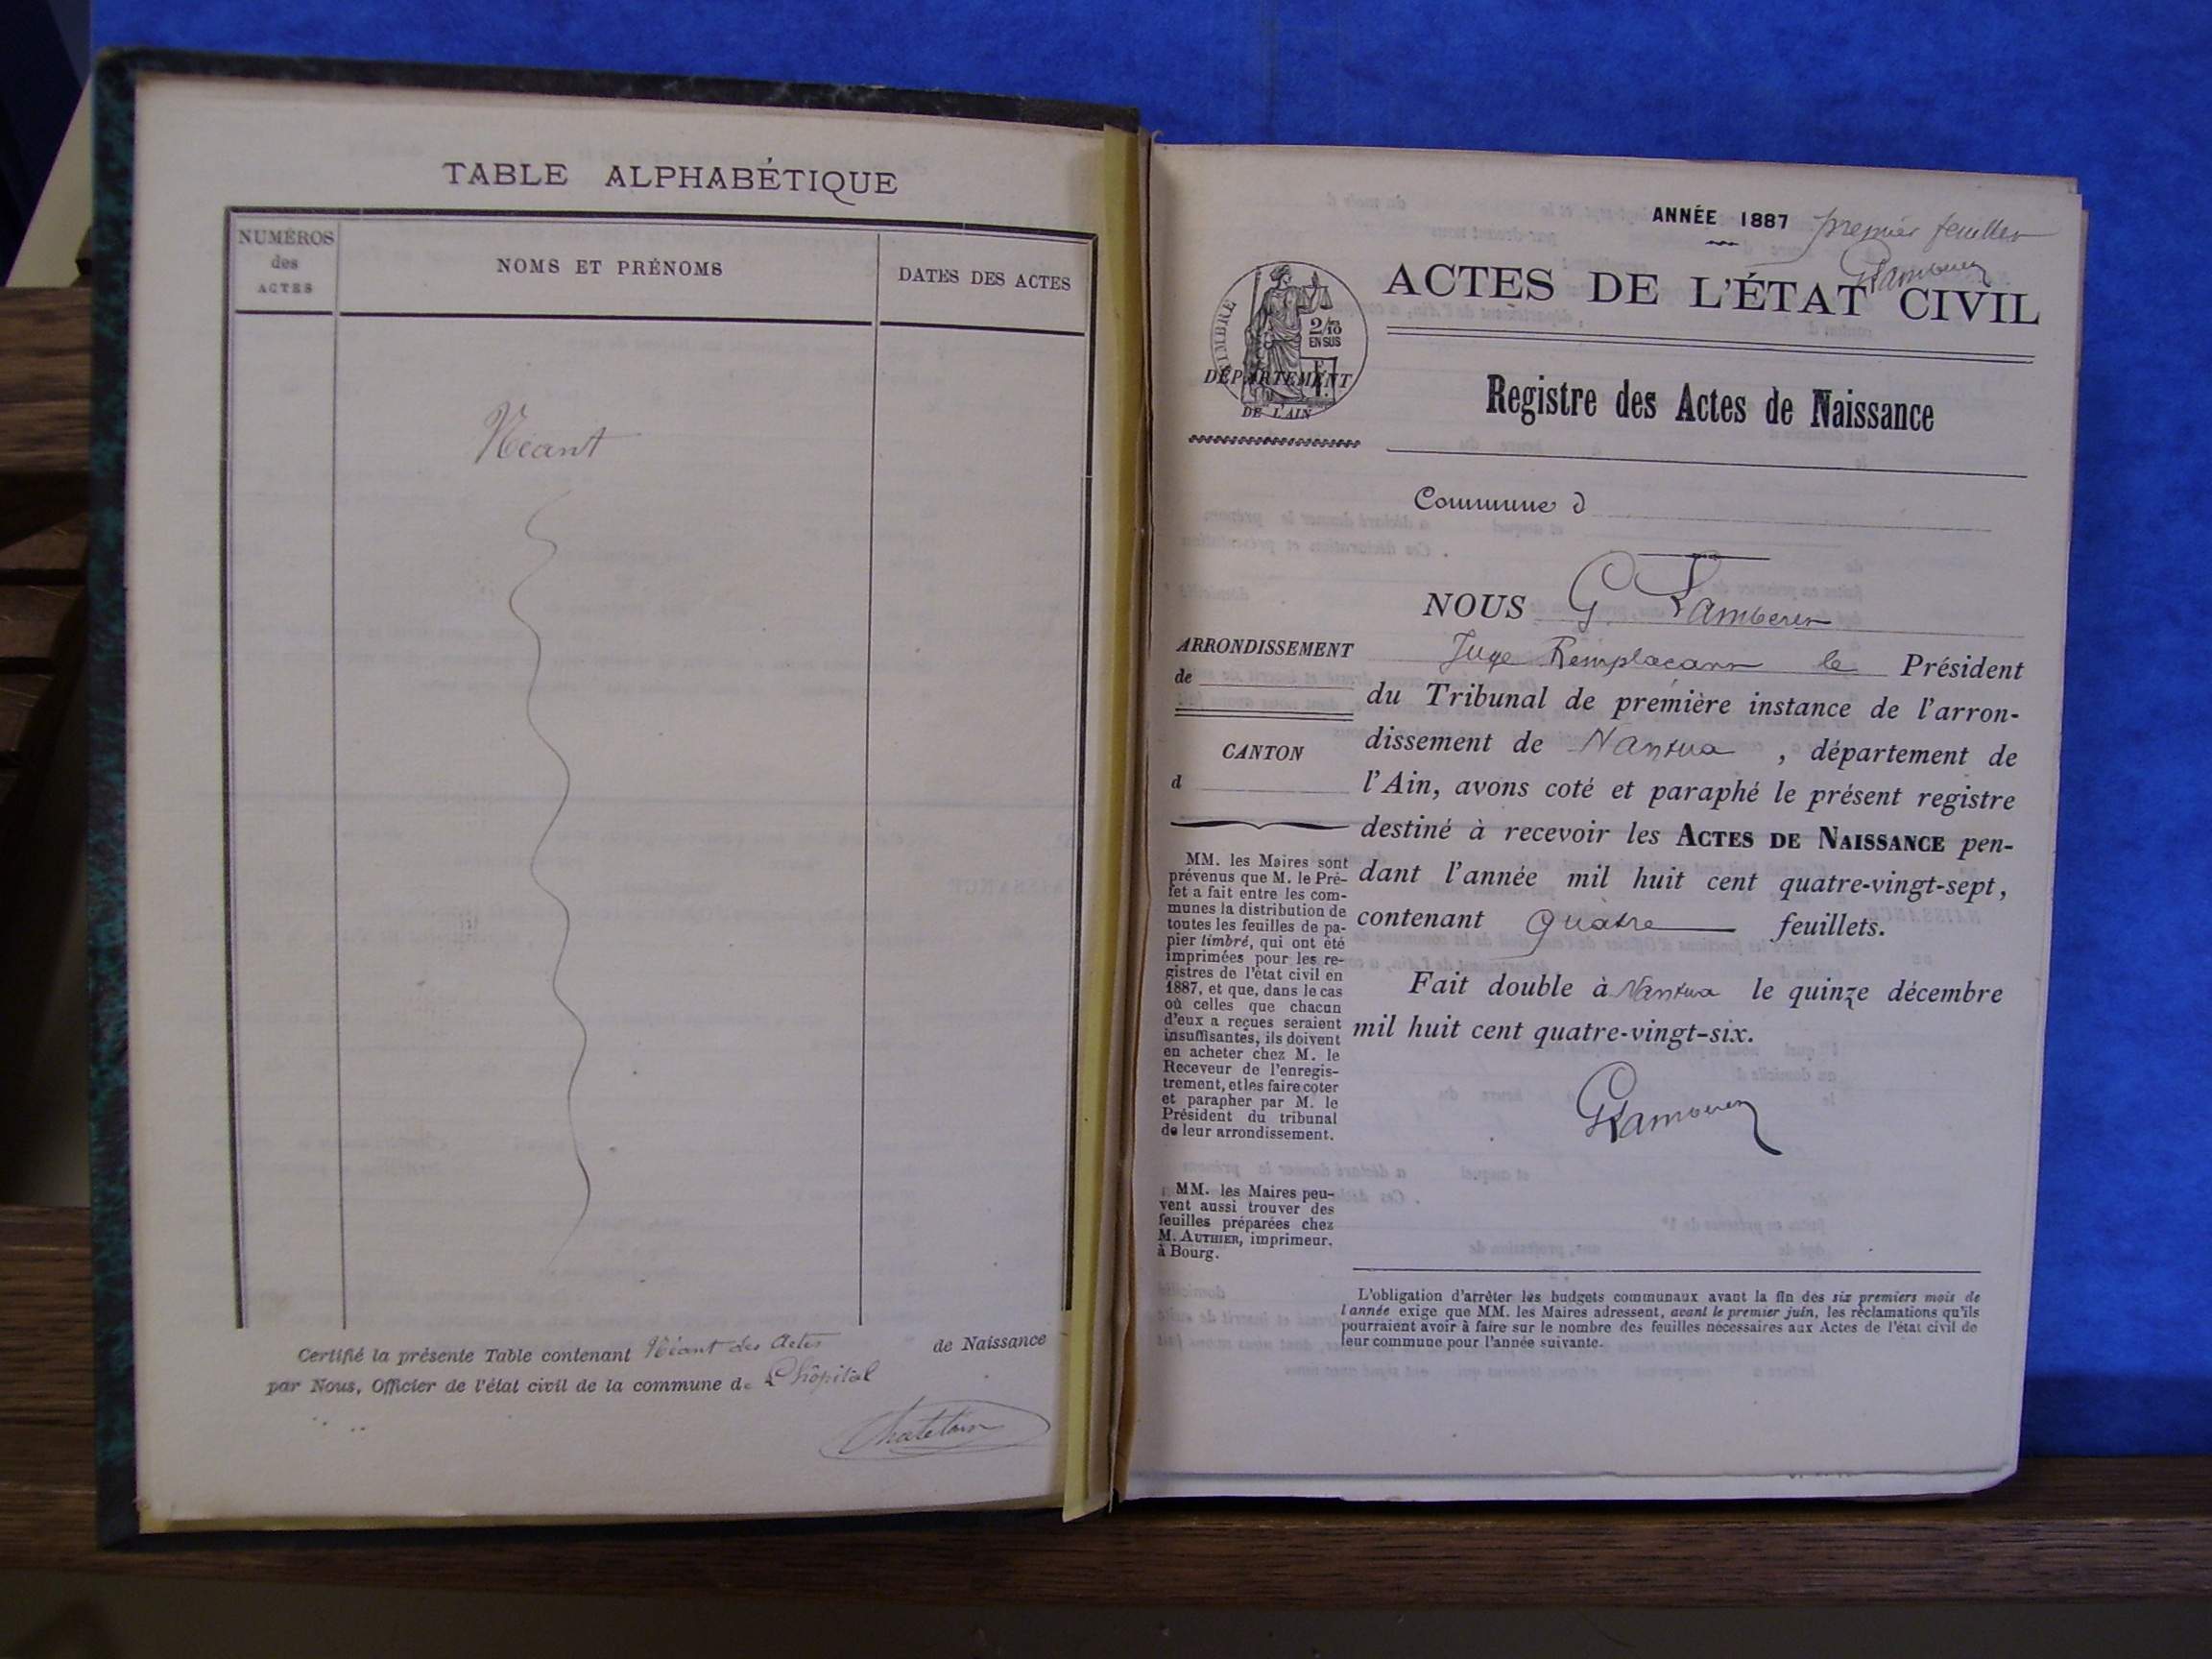 TABLE ALPHABÉTIQUE
NUMÉROS
des
ACTES
NOMS ET PRÉNOMS
DATES DES ACTES
Néant
Certifié la présente Table contenant Néant des Actes de Naissance
par Nous, Officier de l'état civil de la commune de L'hôpital
Chatelain
ANNÉE 1887 premier feuillet
ACTES DE L'ÉTAT CIVIL
TIMBRE
2/10
EN SUS
DÉPARTEMENT
DE L'AIN
Registre des Actes de Naissance
Commune d
NOUS G.
Juge Remplaçant le Président
du Tribunal de première instance de l'arron-
dissement de Nantua, département de
l'Ain, avons coté et paraphé le présent registre
destiné à recevoir les ACTES DE NAISSANCE pen-
dant l'année mil huit cent quatre-vingt-sept,
contenant quatre feuillets.
Fait double à Nantua le quinze décembre
mil huit cent quatre-vingt-six.
ARRONDISSEMENT
de
CANTON
d
MM. les Maires sont
prévenus que M. le Pré-
fet a fait entre les com-
munes la distribution de
toutes les feuilles de pa-
pier timbré, qui ont été
imprimées pour les re-
gistres de l'état civil en
1887, et que, dans le cas
où celles que chacun
d'eux a reçues seraient
insuffisantes, ils doivent
en acheter chez M. le
Receveur de l'enregis-
trement, et les faire coter
et parapher par M. le
Président du tribunal
de leur arrondissement.
MM. les Maires peu-
vent aussi trouver des
feuilles préparées chez
M. AUTHIER, imprimeur,
à Bourg.
L'obligation d'arrêter les budgets communaux avant la fin des six premiers mois de
l'année exige que MM. les Maires adressent, avant le premier juin, les réclamations qu'ils
pourraient avoir à faire sur le nombre des feuilles nécessaires aux Actes de l'état civil de
leur commune pour l'année suivante.